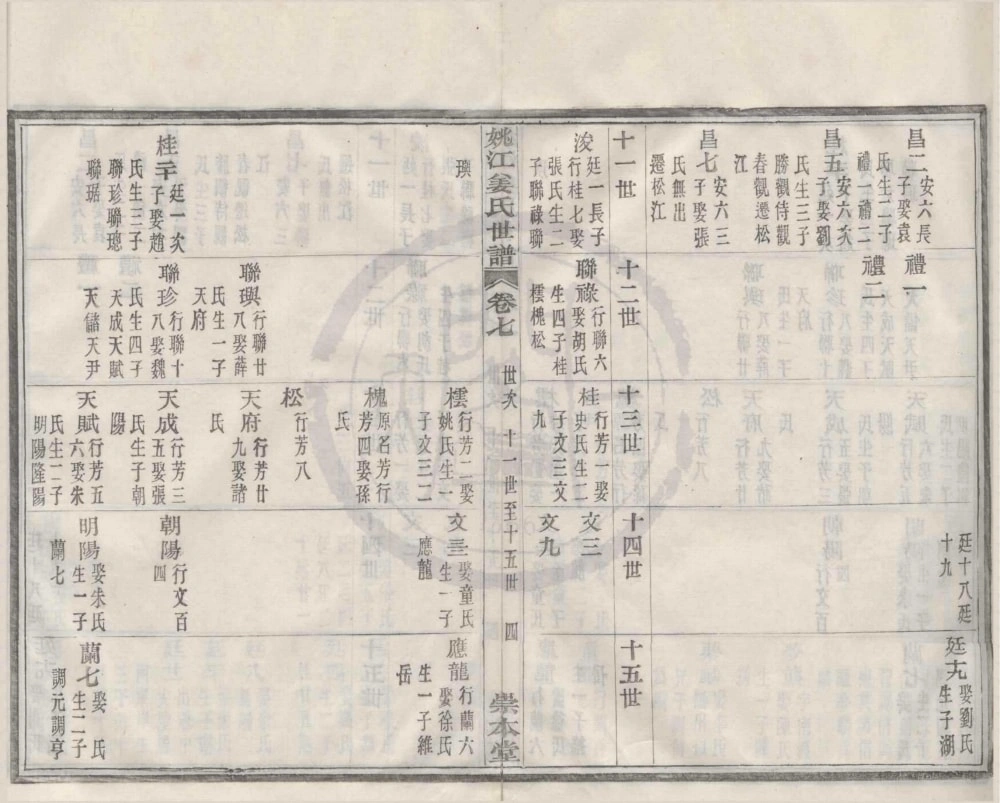 昌二安六長
子娶袁
氏生二子
禮一禮二
昌五安六次
子娶劉
氏生三子
勝觀侍觀
春觀遷松
江
昌七安六三
子娶張
氏無出
遷松江
禮一
禮二
廷十八廷
十九
廷十九娶劉氏
生子湖
十一世
十二世
十三世
十四世
十五世
浚廷一長子
行桂七娶
張氏生二
子聯祿聯
聯祿行聯六
娶胡氏
生四子桂
橒槐松
桂行芳一娶
史氏生二
子文三文
九
文三
文九
姚江姜氏世譜
卷七
世次
十一世至十五世
四
崇本堂
璵
桂二十廷一次
子娶趙
氏生三子
聯珍聯璁
聯琚
聯璵行聯廿
八娶薛
氏生一子
天府
聯珍行聯十
八娶魏
氏生四子
天成天賦
天儲天尹
橒行芳二娶
姚氏生一
子文三二
槐原名芳行
芳四娶孫
氏
松行芳八
天府行芳廿
九娶諸
氏
天成行芳三
五娶張
氏生子朝
陽
天賦行芳五
六娶朱
氏生二子
明陽隆陽
文三二娶童氏
生一子
應龍
朝陽行文百
四
明陽娶朱氏
生一子
蘭七
應龍行蘭六
娶徐氏
生一子維
岳
蘭七娶 氏
生二子
調元調亨